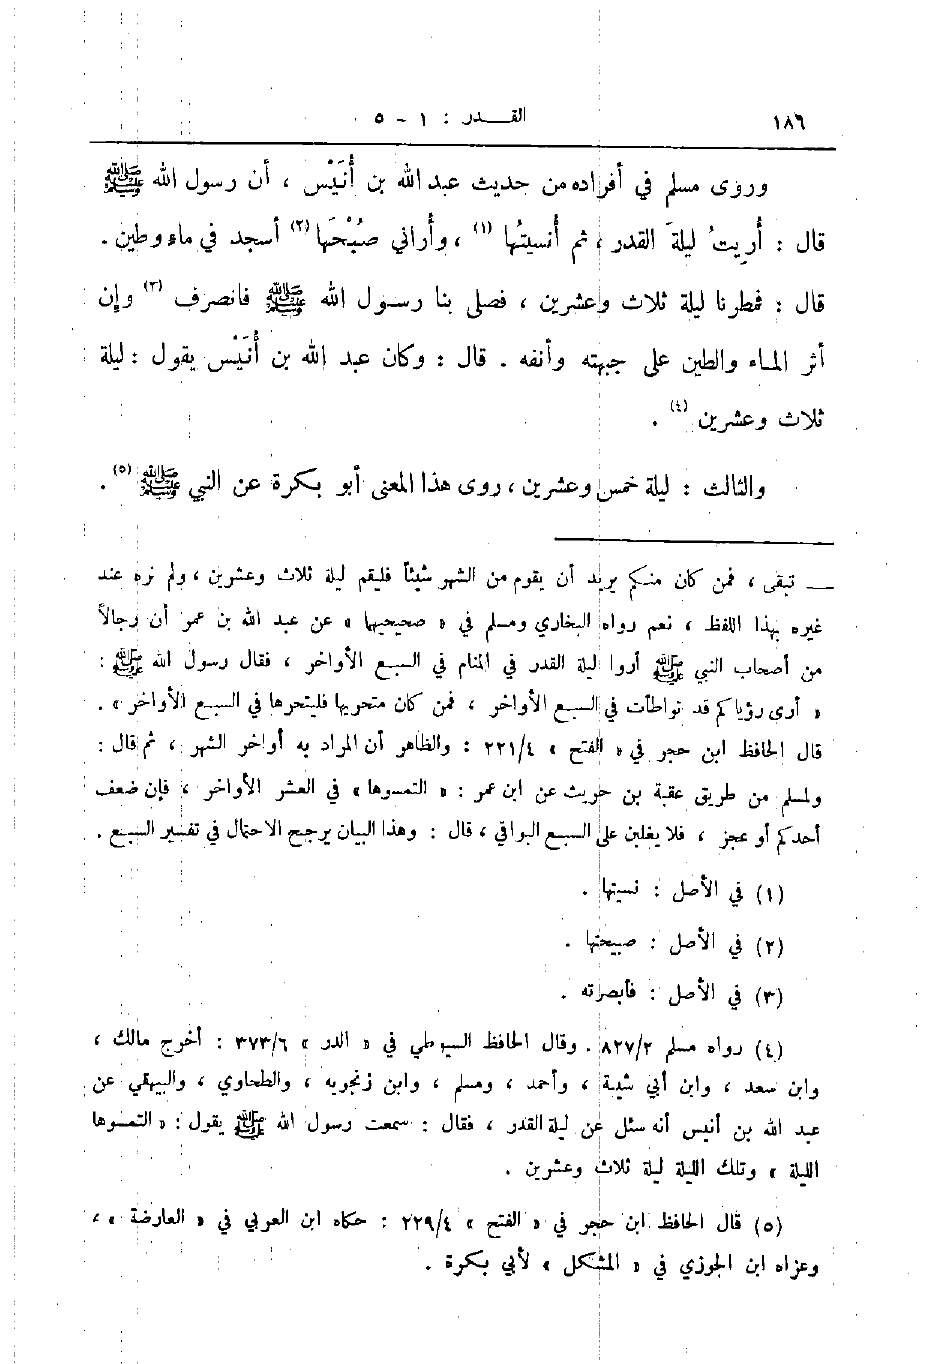 ١٨٦ القــدر : ١ - ٥
وروى مسلم في أفراده من حديث عبد الله بن أُنَيْس ، أن رسول الله ﷺ
قال : أُريتُ ليلةَ القدر ، ثم أُنسيتُها (١) ، وأُراني صُبْحَها (٢) أسجد في ماء وطين .
قال : فمطرنا ليلة ثلاث وعشرين ، فصلى بنا رسول الله ﷺ فانصرف (٣) وإن
أثر الماء والطين على جبهته وأنفه . قال : وكان عبد الله بن أُنَيْس يقول : ليلة
ثلاث وعشرين (٤) .
والثالث : ليلة خمس وعشرين ، روى هذا المعنى أبو بكرة عن النبي ﷺ (٥) .
ـــ تبقى ، فمن كان منكم يريد أن يقوم من الشهر شيئاً فليقم ليلة ثلاث وعشرين ، ولم نره عند
غيره بهذا اللفظ ، نعم رواه البخاري ومسلم في « صحيحيها » عن عبد الله بن عمر أن رجالاً
من أصحاب النبي ﷺ أروا ليلة القدر في المنام في السبع الأواخر ، فقال رسول الله ﷺ :
« أرى رؤياكم قد تواطأت في السبع الأواخر ، فمن كان متحريها فليتحرها في السبع الأواخر » .
قال الحافظ ابن حجر في « الفتح » ٢٢١/٤ : والظاهر أن المراد به أواخر الشهر ، ثم قال :
ولمسلم من طريق عقبة بن حريث عن ابن عمر : « التمسوها » في العشر الأواخر ، فإن ضعف
أحدكم أو عجز ، فلا يغلبن على السبع البواقي ، قال : وهذا البيان يرجح الاحتمال في تفسير السبع .
(١) في الأصل : نسيتها .
(٢) في الأصل : صبيحتها .
(٣) في الأصل : فأبصرته .
(٤) رواه مسلم ٨٢٧/٢ . وقال الحافظ السيوطي في « الدر » ٣٧٣/٦ : أخرج مالك ،
وابن سعد ، وابن أبي شيبة ، وأحمد ، ومسلم ، وابن زنجويه ، والطحاوي ، والبيهقي عن
عبد الله بن أنيس أنه سئل عن ليلة القدر ، فقال : سمعت رسول الله ﷺ يقول : « التمسوها
الليلة » وتلك الليلة ليلة ثلاث وعشرين .
(٥) قال الحافظ ابن حجر في « الفتح » ٢٢٩/٤ : حكاه ابن العربي في « العارضة » ،
وعزاه ابن الجوزي في « المشكل » لأبي بكرة .